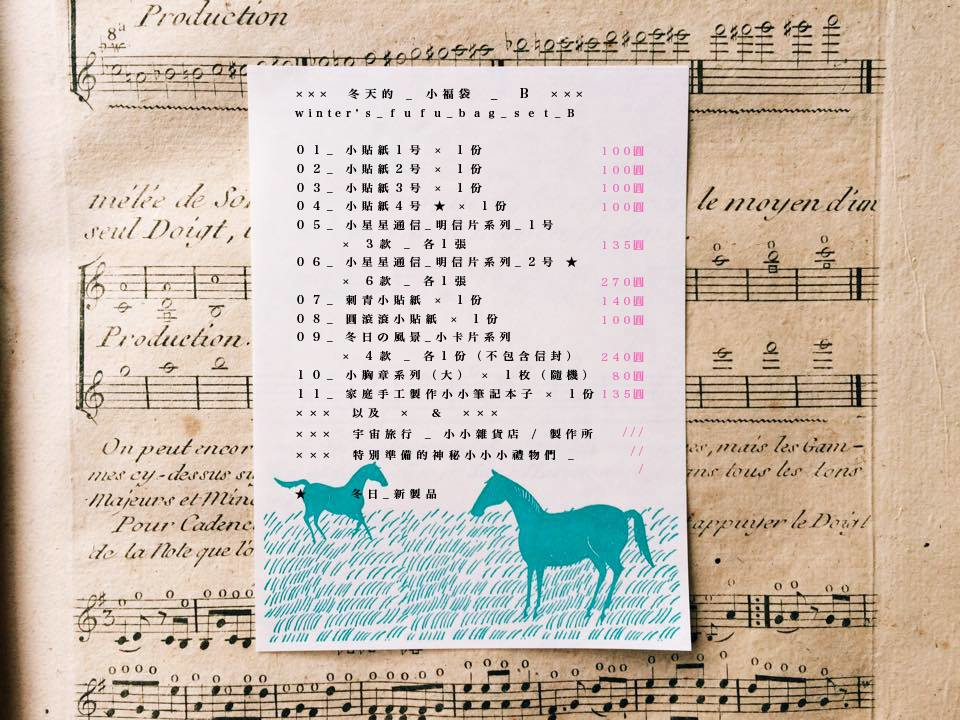 Production
8ª
××× 冬天的 _ 小福袋 _ B ×××
winter's_fufu_bag_set_B
01_ 小貼紙1号 × 1份 100圓
02_ 小貼紙2号 × 1份 100圓
03_ 小貼紙3号 × 1份 100圓
04_ 小貼紙4号 ★ × 1份 100圓
05_ 小星星通信_明信片系列_1号
× 3款 _ 各1張 135圓
06_ 小星星通信_明信片系列_2号 ★
× 6款 _ 各1張 270圓
07_ 刺青小貼紙 × 1份 140圓
08_ 圓滾滾小貼紙 × 1份 100圓
09_ 冬日の風景_小卡片系列
× 4款 _ 各1份（不包含信封） 240圓
10_ 小胸章系列（大） × 1枚（隨機） 80圓
11_ 家庭手工製作小小筆記本子 × 1份 135圓
××× 以及 × & ×××
××× 宇宙旅行 _ 小小雜貨店 / 製作所 ///
××× 特別準備的神秘小小小禮物們 _ //
/
★ 冬日_新製品
mélée de
le moyen d'un
seul Doigt,
Production.
On peut encor
mais les Gam-
mes cy-dessus
dans tous les tons
Majeurs et
Pour Cadenc
appuyer le Doigt
de la Note que l'o
3